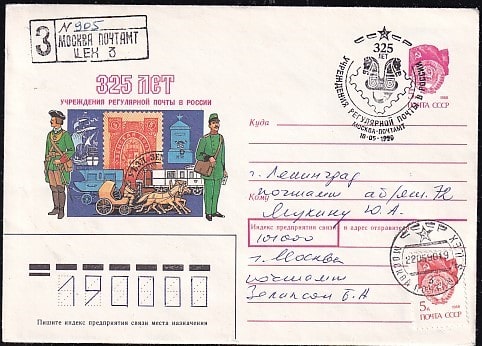 З
N 905
МОСКВА ПОЧТАМТ
ЦЕХ 3
325 ЛЕТ
УЧРЕЖДЕНИЯ РЕГУЛЯРНОЙ ПОЧТЫ В РОССИИ
325
ЛЕТ
УЧРЕЖДЕНИЯ РЕГУЛЯРНОЙ ПОЧТЫ В РОССИИ
МОСКВА-ПОЧТАМТ
18-05-1990
ПОЧТА СССР
Куда
г. Ленинград
почтамт аб/ящ. 72
Кому
Ягукину Ю. А.
Индекс предприятия связи и адрес отправителя
101000
г. Москва
почтамт
190000
Пишите индекс предприятия связи места назначения
МОСКВА ПОЧТАМТ
5к
ПОЧТА СССР